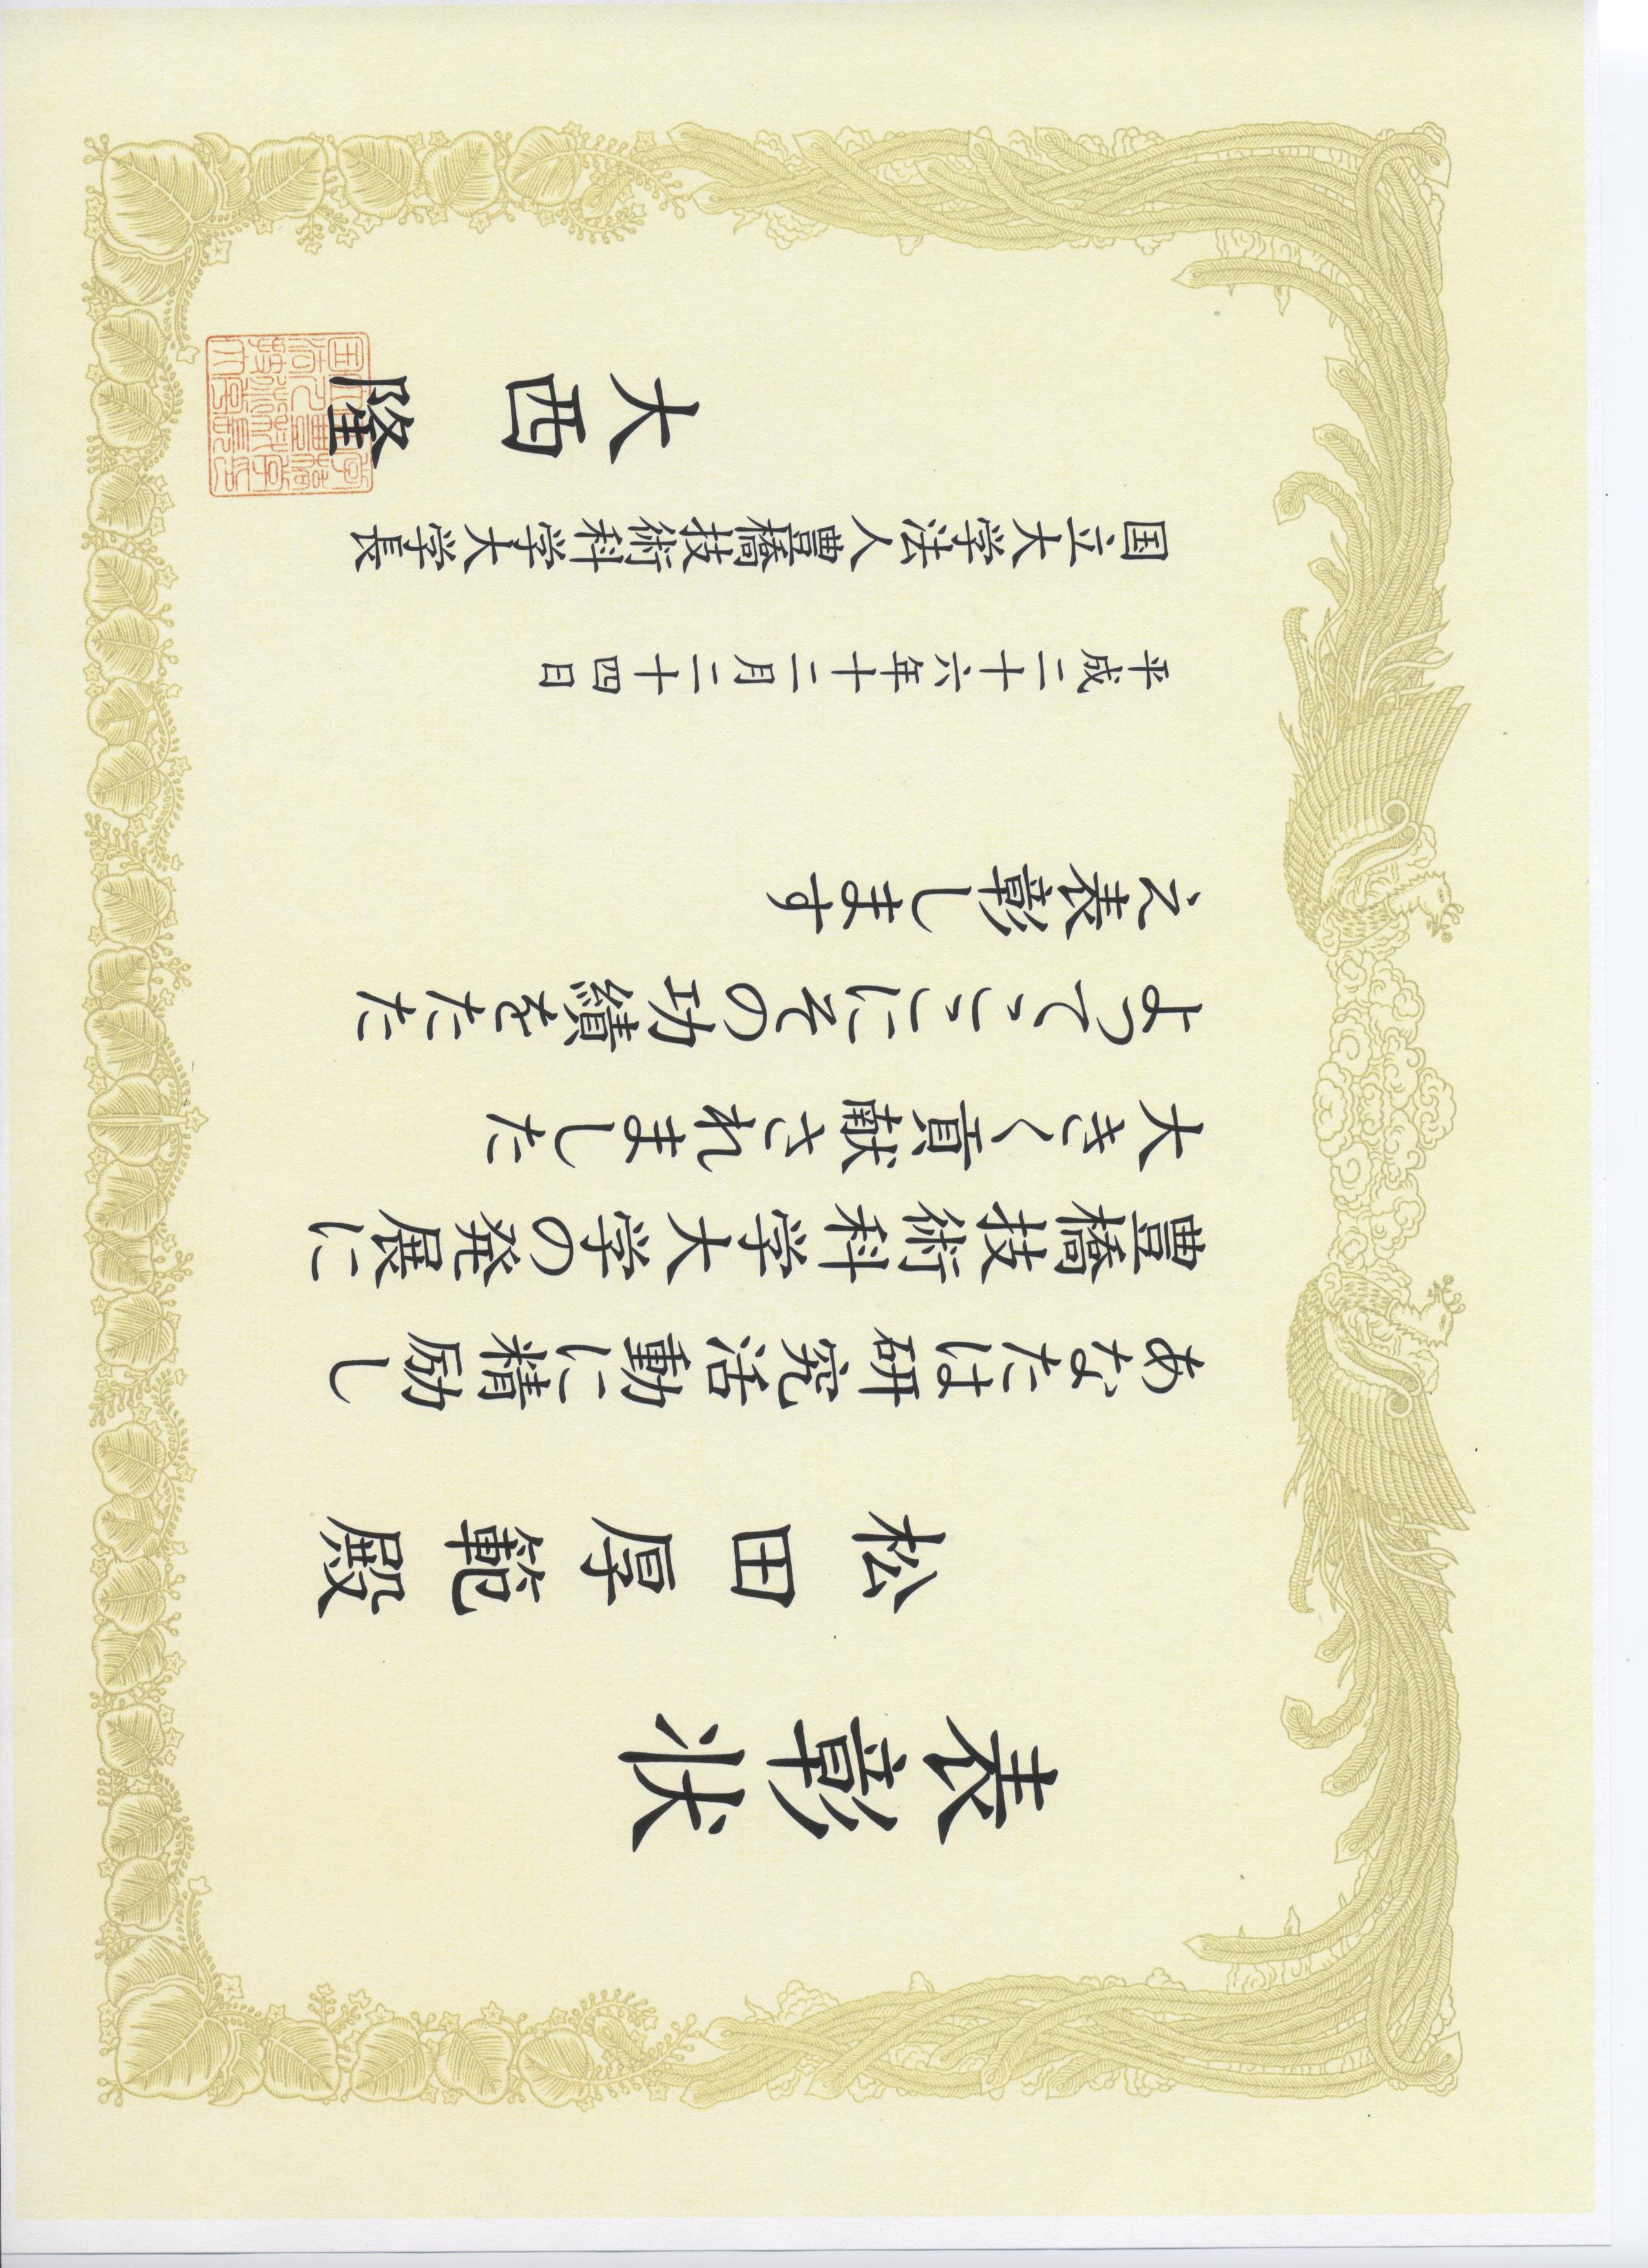 表彰状
松田厚範殿
あなたは研究活動に精励し
豊橋技術科学大学の発展に
大きく貢献されました
よってここにその功績をたた
え表彰します
平成二十六年十二月二十四日
国立大学法人豊橋技術科学大学長
大西隆